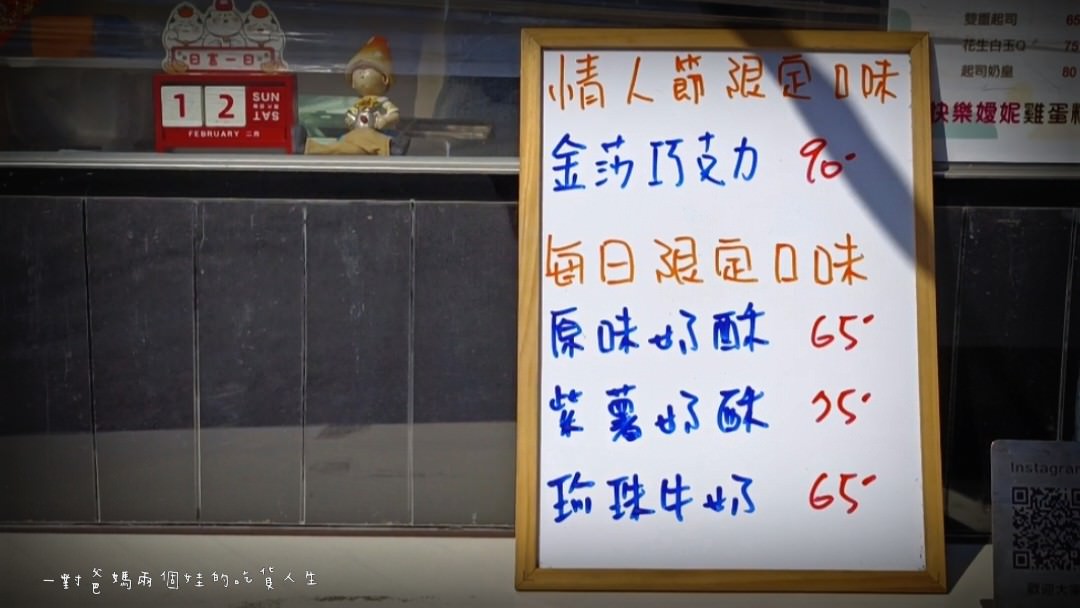 日富一日
1 2 SUN SAT
FEBRUARY 二月
情人節限定口味
金莎巧克力 90-
每日限定口味
原味奶酥 65-
紫薯奶酥 75-
珍珠牛奶 65-
雙重起司 65
花生白玉Q 75
起司奶皇 80
快樂嬡妮雞蛋糕
Instagram
歡迎大家
一對爸媽兩個娃的吃貨人生